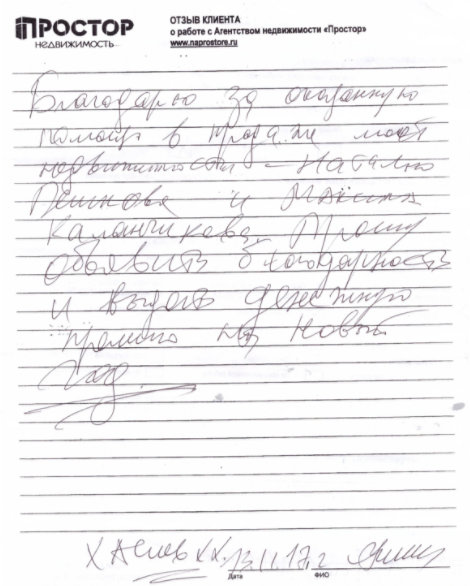 ПРОСТОР
НЕДВИЖИМОСТЬ
ОТЗЫВ КЛИЕНТА
о работе с Агентством недвижимости «Простор»
www.naprostore.ru
Благодарю за оказанную
помощь в продаже моей
недвижимости – Наталью
и Максима
Каланчикова. Прошу
объявить благодарность
и выдать денежную
премию на Новый
год.
13.11.17 г
Дата ФИО